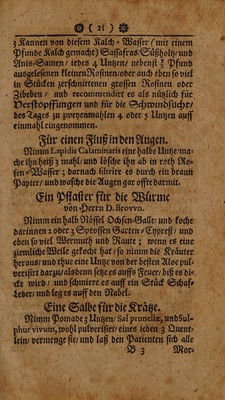 ( 21 )
2 Kannen von diesem Kalch-Wasser (mit einem
Pfunde Kalch gemacht) Sassafras/ Süßholtz/ und
Anis-Samen/ iedes 4 Untzen/ nebenst ½ Pfund
ausgelesenen kleinen Rosinen/ oder auch eben so viel
in Stücken zerschnittenen grossen Rosinen oder
Zibeben/ und recommendirt es als nützlich für
Verstopffungen und für die Schwindsucht/
des Tages zu zweyenmahlen 4 oder 5 Untzen auff
einmahl eingenommen.
Für einen Fluß in den Augen.
Nimm Lapidis Calaminaris eine halbe Untze/ ma-
che ihn heiß 3 mahl/ und lösche ihn ab in roth Ro-
sen-Wasser; darnach filtrire es durch ein braun
Papier/ und wasche die Augen gar offte darmit.
Ein Pflaster für die Würme
von Herrn D. Brovvn.
Nimm ein halb Nössel Ochsen-Galle/ und koche
darinnen 2 oder 3 Sprossen Garten-Cypreß/ und
eben so viel Wermuth und Raute; wenn es eine
ziemliche Weile gekocht hat/ so nimm die Kräuter
heraus/ und thue eine Untze von der besten Aloe pul-
verisirt darzu/ alsdem setze es auffs Feuer/ biß es di-
cke wird/ und schmiere es auff ein Stück Schaf-
Leder/ und leg es auff den Nabel.
Eine Salbe für die Krätze.
Nimm Pomade 3 Untzen/ Sal prunellæ, und Sul-
phur vivum, wohl pulverisirt/ eines ieden 3 Quent-
lein/ vermenge sie/ und laß den Patienten sich alle
B 3 Mor-